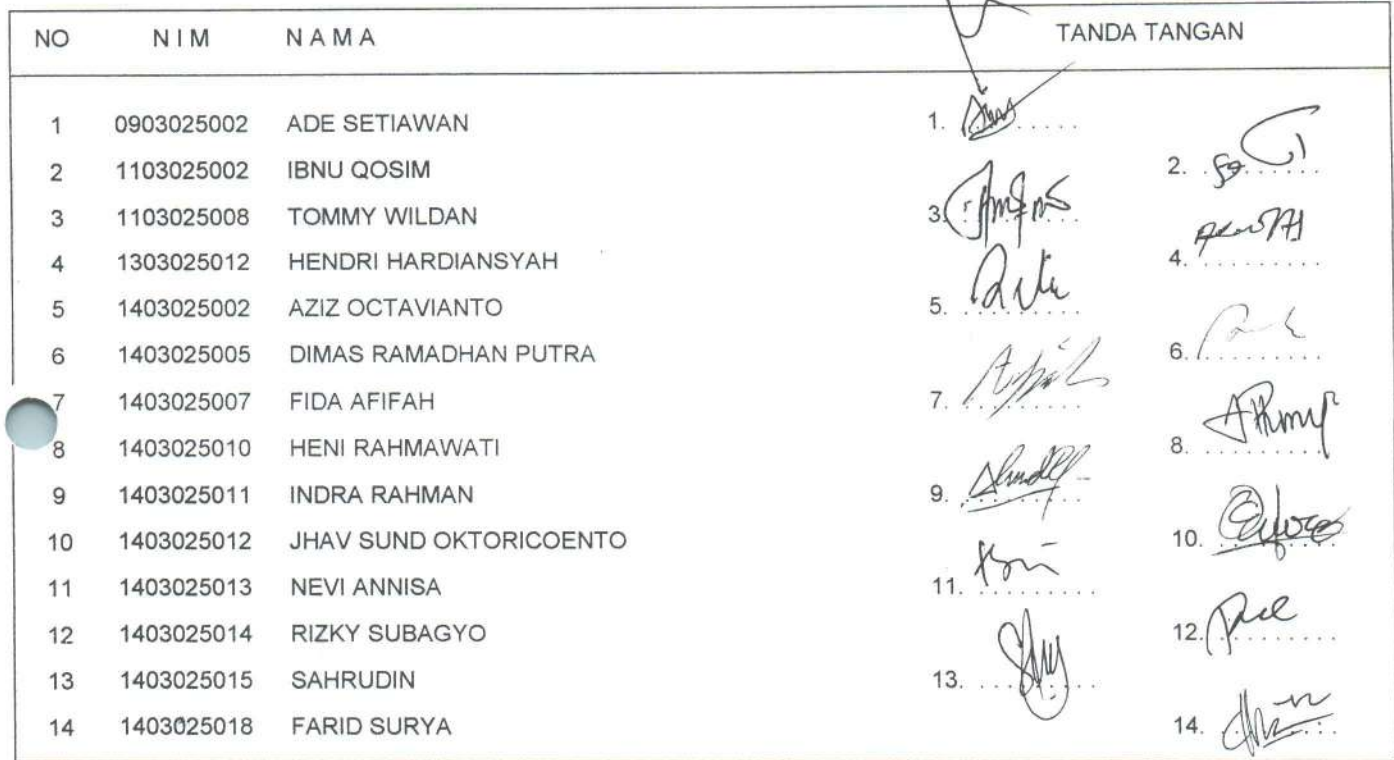 NO NIM NAMA TANDA TANGAN
1 0903025002 ADE SETIAWAN 1.
2 1103025002 IBNU QOSIM 2.
3 1103025008 TOMMY WILDAN 3.
4 1303025012 HENDRI HARDIANSYAH 4.
5 1403025002 AZIZ OCTAVIANTO 5.
6 1403025005 DIMAS RAMADHAN PUTRA 6.
7 1403025007 FIDA AFIFAH 7.
8 1403025010 HENI RAHMAWATI 8.
9 1403025011 INDRA RAHMAN 9.
10 1403025012 JHAV SUND OKTORICOENTO 10.
11 1403025013 NEVI ANNISA 11.
12 1403025014 RIZKY SUBAGYO 12.
13 1403025015 SAHRUDIN 13.
14 1403025018 FARID SURYA 14.